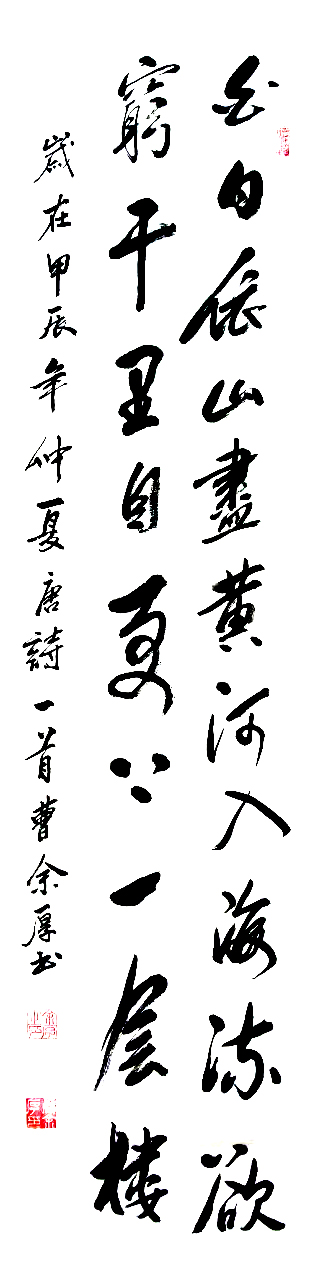 白日依山盡黄河入海流欲
窮千里目更上一层楼
歲在甲辰年仲夏唐詩一首曹余厚书